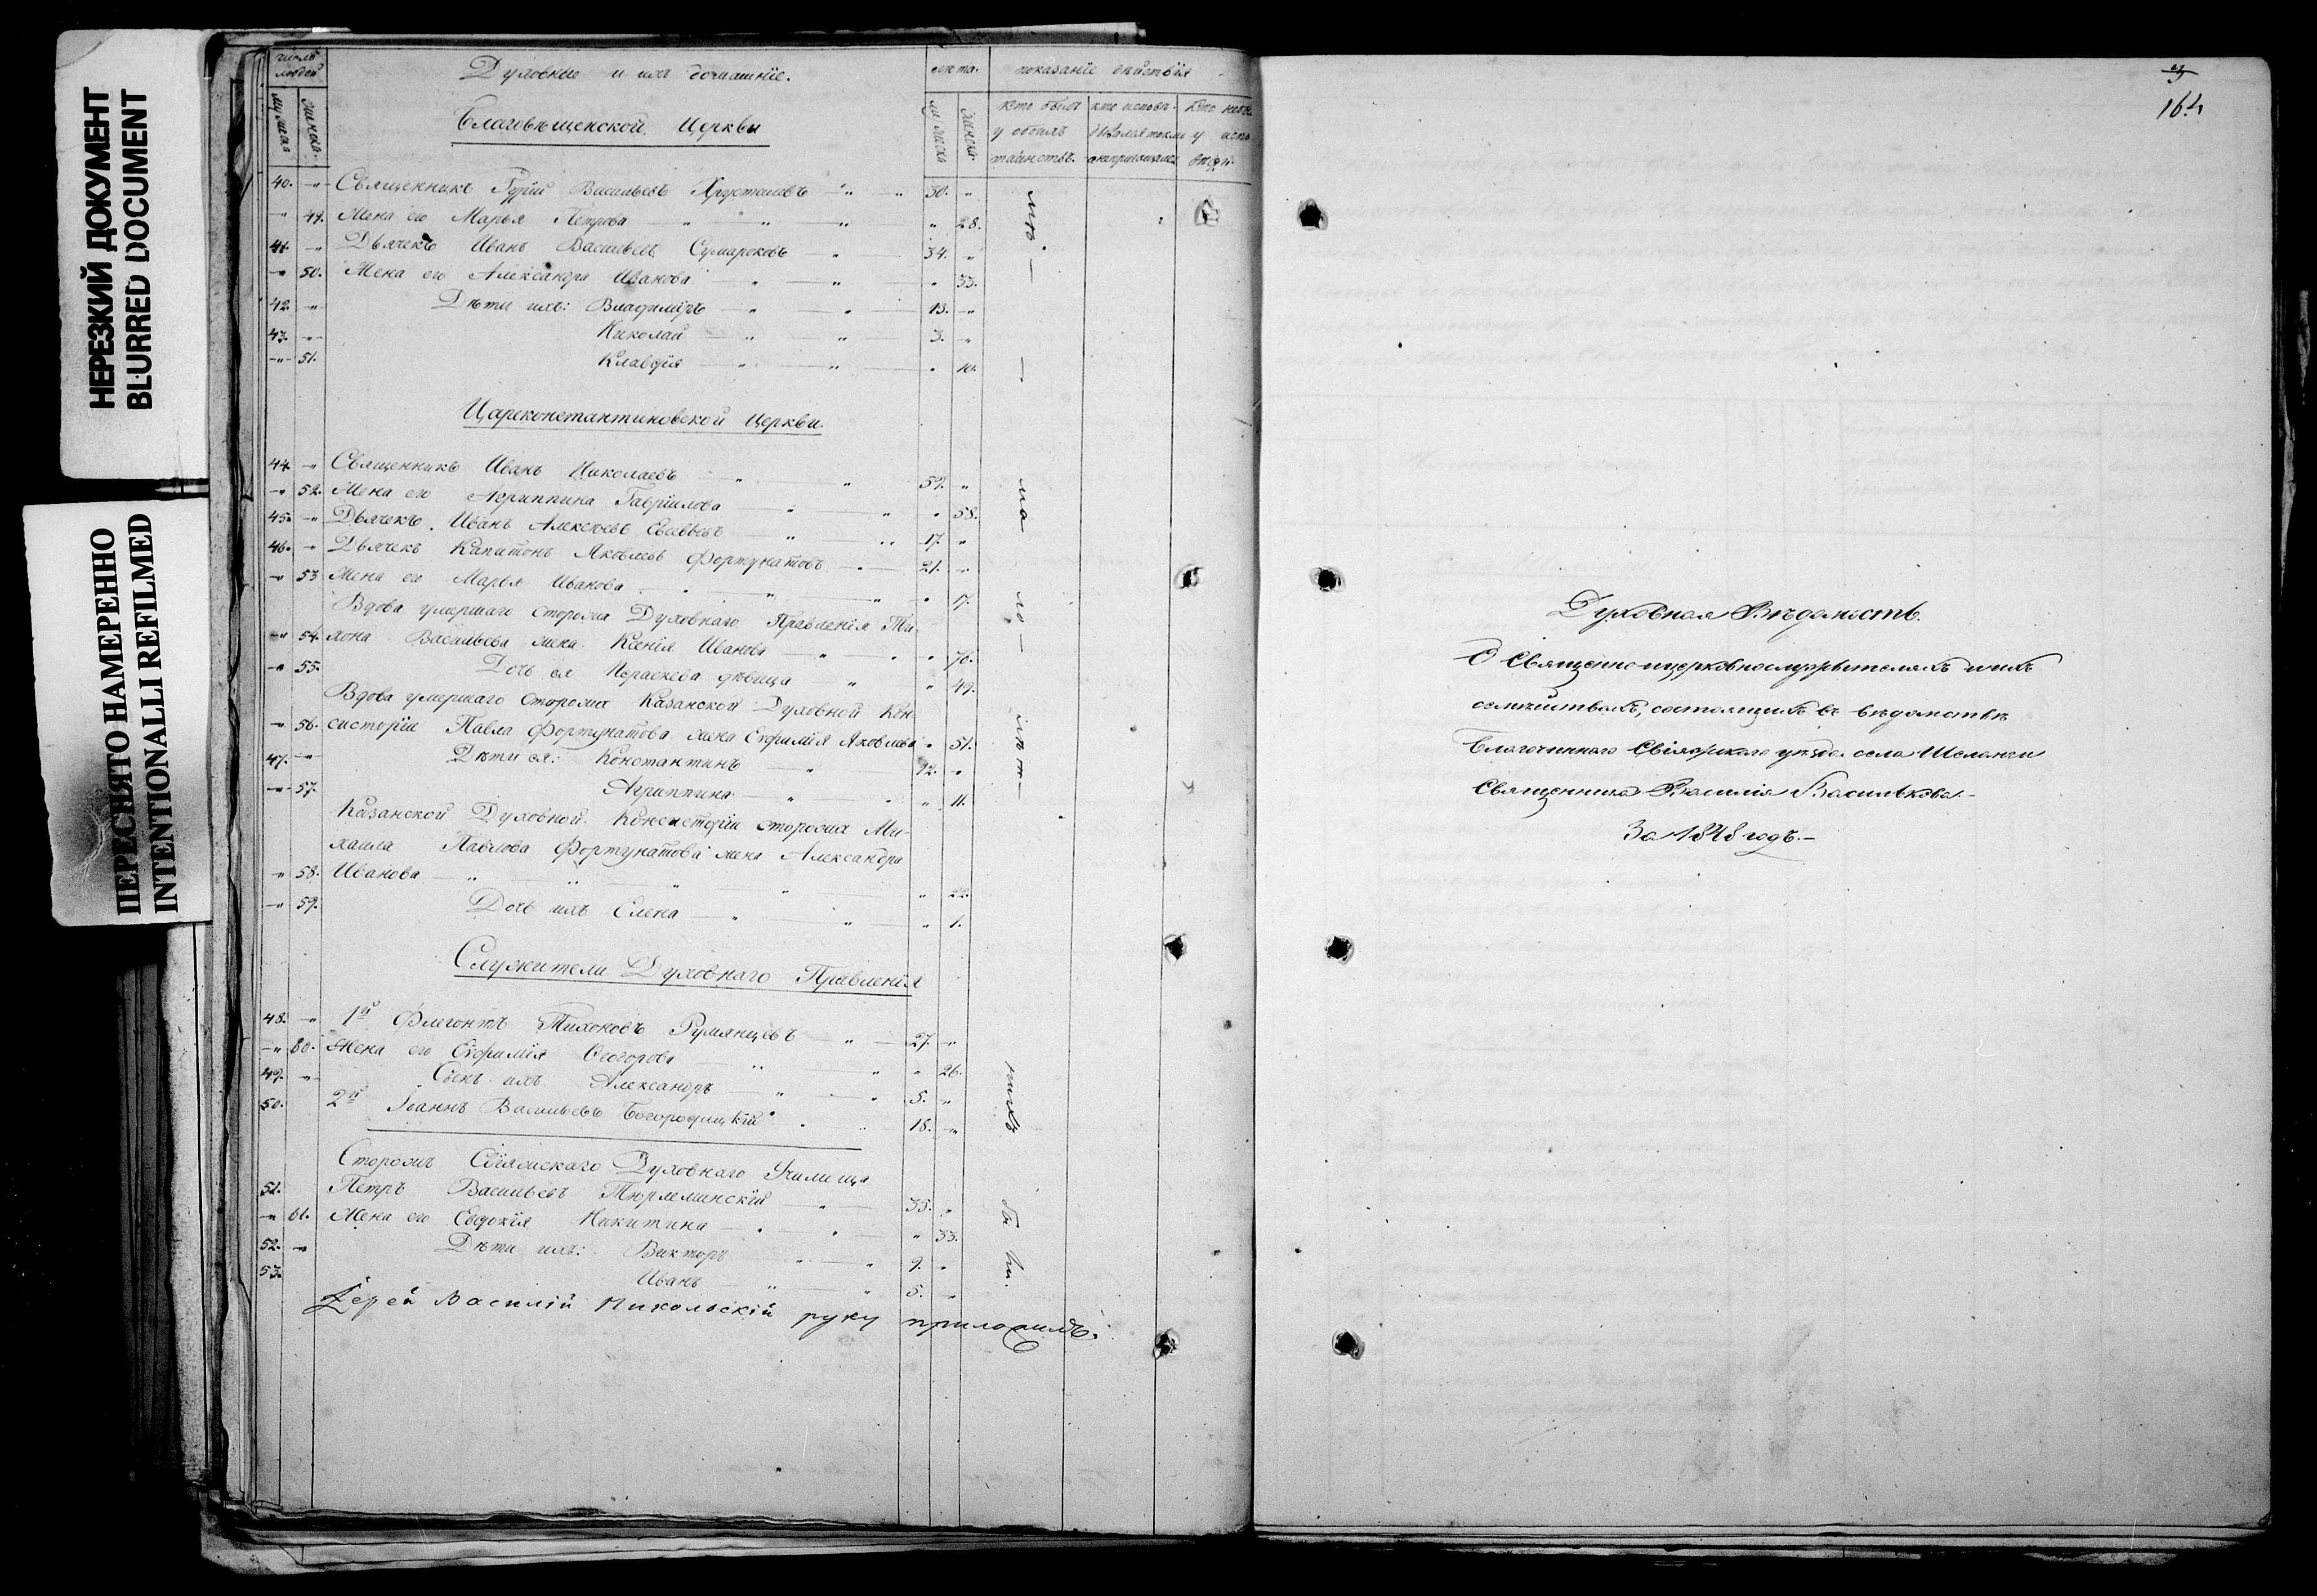 НЕРЕЗКИЙ ДОКУМЕНТ
BLURRED DOCUMENT
ПЕРЕСНЯТО НАМЕРЕННО
INTENTIONALLI REFILMED
число людей Духовные и ихъ домашніе. лѣта. показаніе дѣйствія
Благовѣщенской Церкви
кто былъ у обоихъ таинствъ.
40. Священникъ Гурій Васильевъ Хрусталевъ 30.
49. Жена его Марья Петрова 28.
41. Дьячекъ Иванъ Васильевъ Сумароковъ 34.
50. Жена его Александра Иванова 33.
42. Дѣти ихъ: Владиміръ 13.
43. Николай 3.
51. Клавдія 10.
Цареконстантиновской Церкви.
44. Священникъ Иванъ Николаевъ 59.
52. Жена его Агриппина Гавріилова 58.
45. Дьячекъ Иванъ Алексѣевъ 17.
46. Дьячекъ Капитонъ Яковлевъ Фортунатовъ 21.
53 Жена его Марья Иванова 17.
Вдова умершаго сторожа Духовнаго Правленія Ти-
54. хона Васильева жена Ксенія Иванова 70.
55. Дочь ея Параскева дѣвица 49.
Вдова умершаго Сторожа Казанской Духовной Кон-
56. систоріи Павла Фортунатова жена Евфимія Яковлева 51.
47. Дѣти ея: Константинъ 12.
57. Агриппина 11.
Казанской Духовной Консисторіи сторожа Ми-
хаила Павлова Фортунатова жена Александра
58. Иванова 22.
59. Дочь ихъ Елена 1.
Служители Духовнаго Правленія
48. 1й Флегонтъ Тихоновъ Румянцевъ 27.
60. Жена его Евфимія Ѳеодорова 26.
49. Сынъ ихъ Александръ 5.
50. 2й Іоаннъ Васильевъ Богородицкій 18.
Сторожъ Свіяжскаго Духовнаго Училища
51. Петръ Васильевъ Тюрлеминскій 35.
61. Жена его Евдокія Никитина 33.
52. Дѣти ихъ: Викторъ 9.
53. Иванъ 5.
Іерей Василій Никольскій руку приложилъ.
164
Духовная Вѣдомость.
О Священноицерковнослужителяхъ и ихъ
семействахъ, состоящихъ въ вѣдомствѣ
Благочиннаго Свіяжскаго уѣзда села Шеланги
Священника Василія Василькова.
За 1848 годъ.